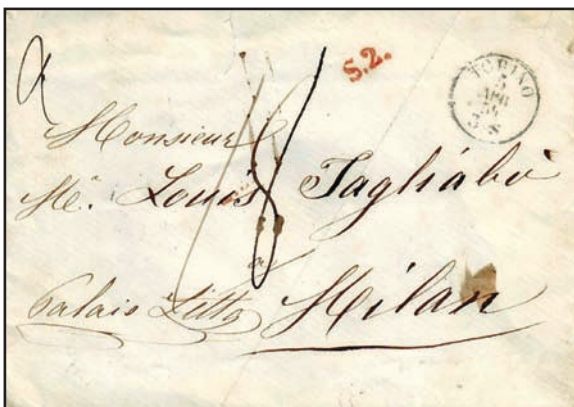 S.2.
TORINO
5
APR
54
3 S
Monsieur
Mr. Louis Tagliabò
à
Palais Litta Milan